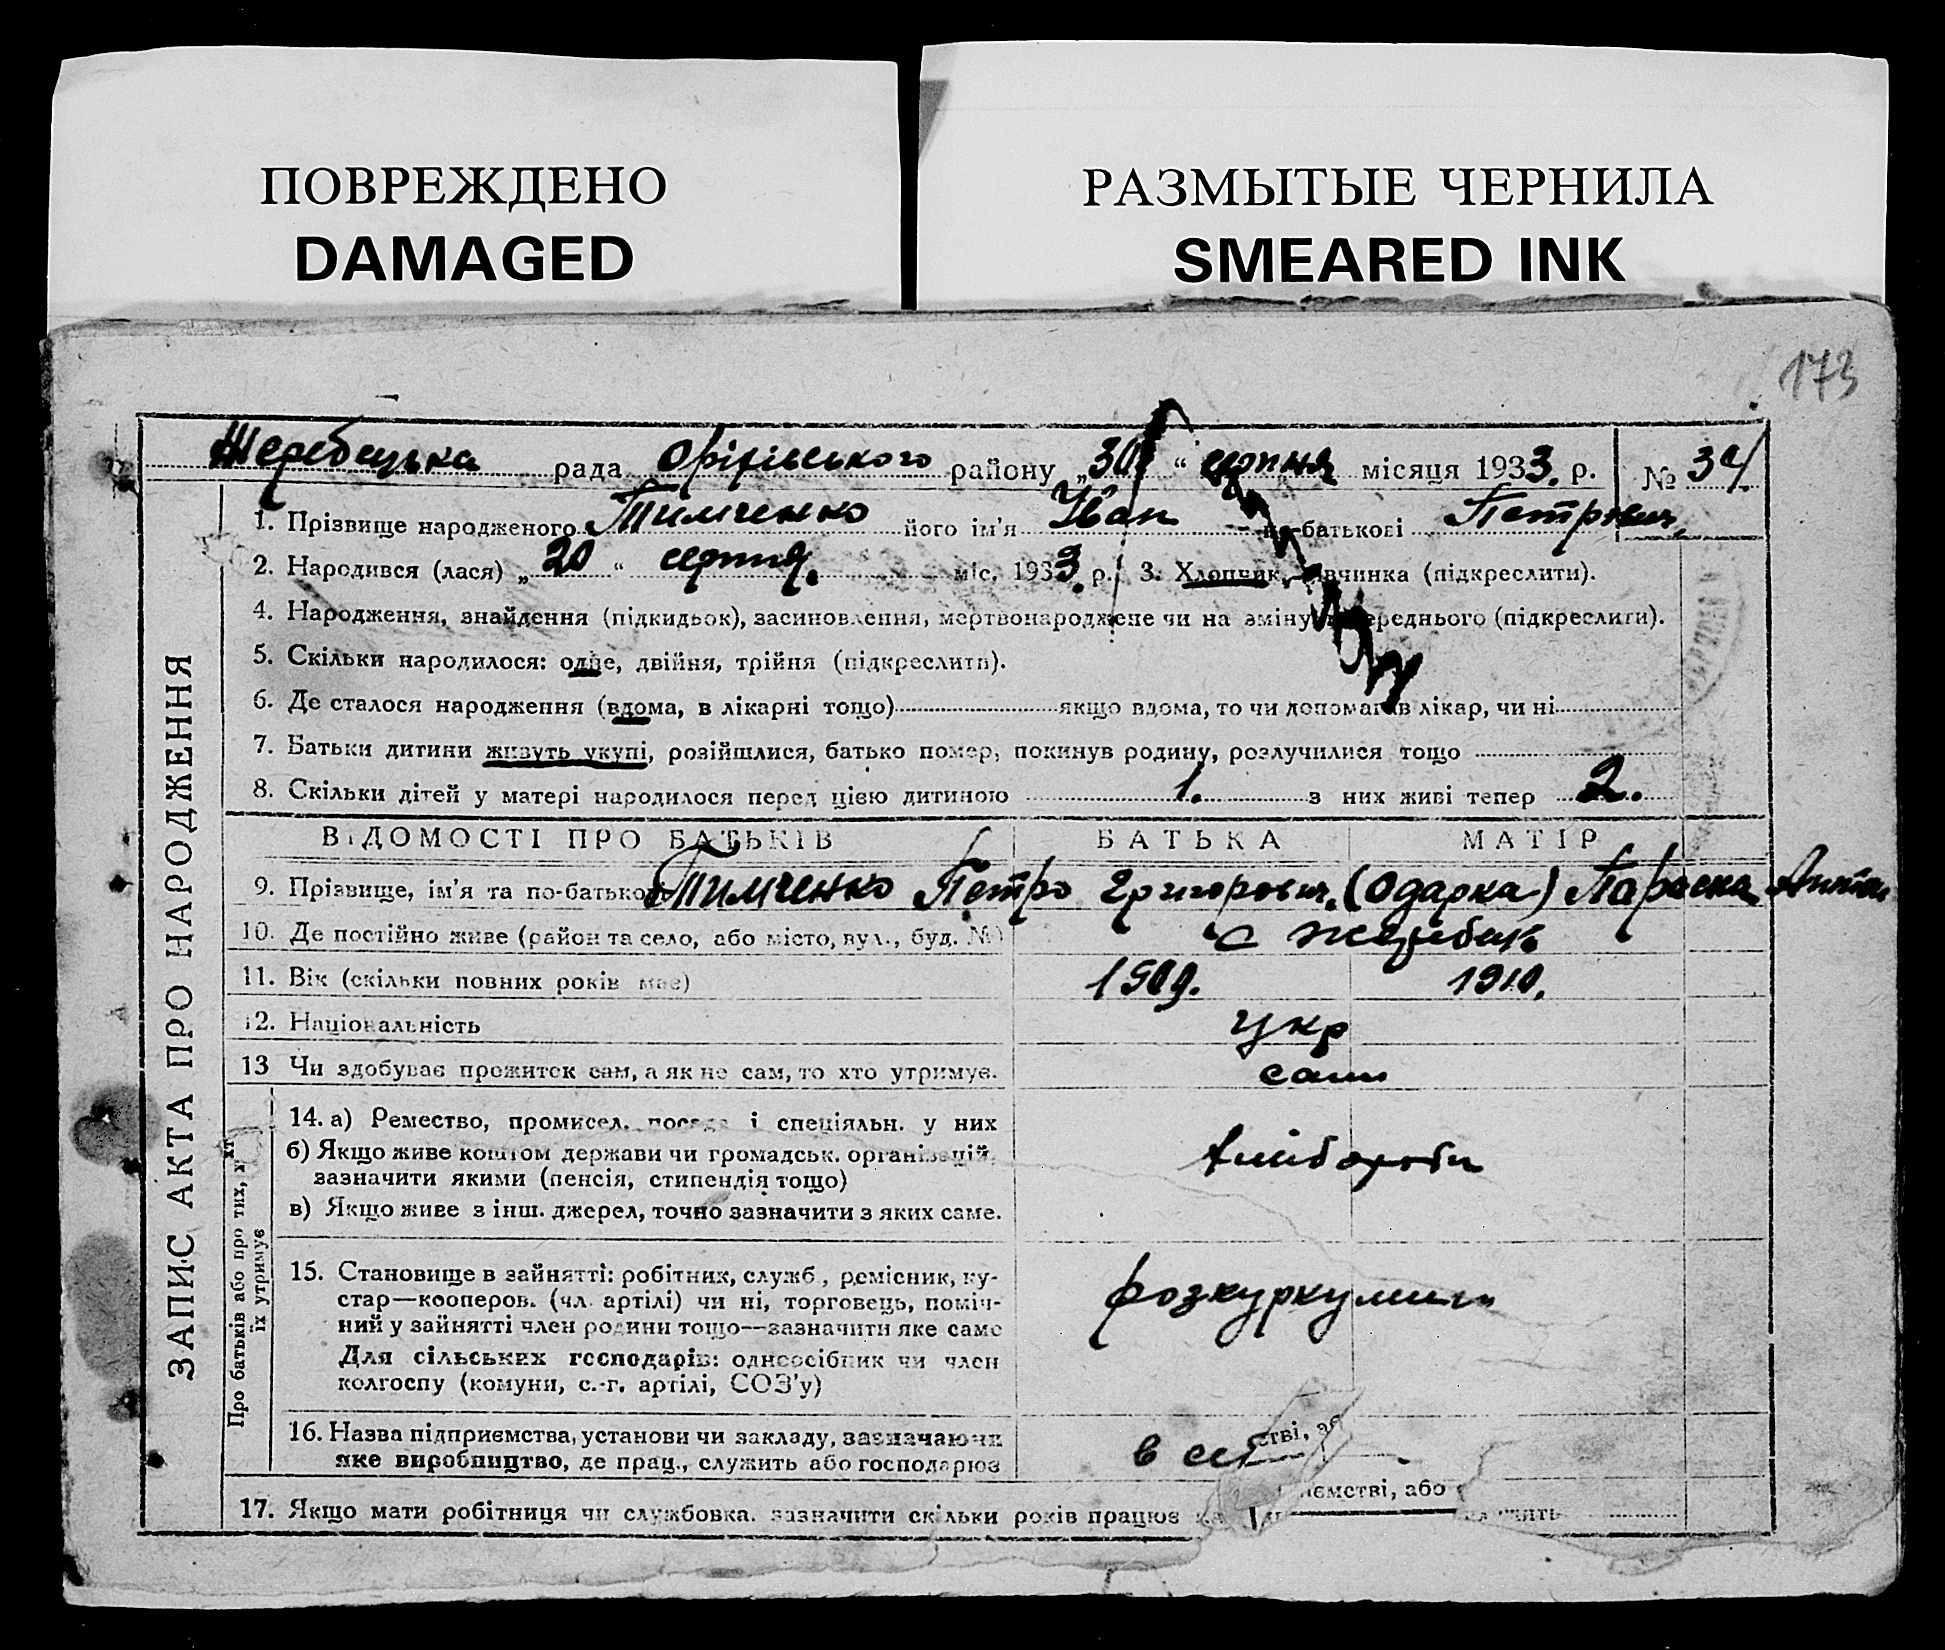 ПОВРЕЖДЕНО
DAMAGED
РАЗМЫТЫЕ ЧЕРНИЛА
SMEARED INK
173
Жеребецька рада Оріхівського району „30“ серпня місяця 1933. р. № 34
1. Прізвище народженого Тимченко його ім'я Іван по-батькові Петрович,
2. Народився (лася) „20“ серпня. міс. 1933. р. 3. Хлопчик, дівчинка (підкреслити).
4. Народження, знайдення (підкидьок), засиновлення, мертвонароджене чи на зміну попереднього (підкреслити).
5. Скільки народилося: одне, двійня, трійня (підкреслити).
6. Де сталося народження (вдома, в лікарні тощо) якщо вдома, то чи допомагав лікар, чи ні
7. Батьки дитини живуть укупі, розійшлися, батько помер, покинув родину, розлучилися тощо
8. Скільки дітей у матері народилося перед цією дитиною 1. з них живі тепер 2.
ВІДОМОСТІ ПРО БАТЬКІВ БАТЬКА МАТІР
9. Прізвище, ім'я та по-батькові Тимченко Петро Григорович, (Одарка) Параска
10. Де постійно живе (район та село, або місто, вул., буд. №) с Жеребець
11. Вік (скільки повних років має) 1909. 1910.
12. Національність укр
13 Чи здобуває прожиток сам, а як не сам, то хто утримує. сами
14. а) Ремество, промисел, посада і спеціяльн. у них
б) Якщо живе коштом держави чи громадськ. організацій, зазначити якими (пенсія, стипендія тощо) хлібороби
в) Якщо живе з інш. джерел, точно зазначити з яких саме.
15. Становище в зайнятті: робітник, служб., ремісник, ку-
стар—кооперов. (чл. артілі) чи ні, торговець, поміч-
ний у зайнятті член родини тощо—зазначити яке саме
Для сільських господарів: одноосібник чи член
колгоспу (комуни, с.-г. артілі, СОЗ'у)
розкуркулині
16. Назва підприємства, установи чи закладу, зазначаючи
яке виробництво, де прац., служить або господарює
в
стві, за
17. Якщо мати робітниця чи службовка, зазначити скільки років працює на
ємстві, або
жить
ЗАПИС АКТА ПРО НАРОДЖЕННЯ
Про батьків або про тих, хто
їх утримує